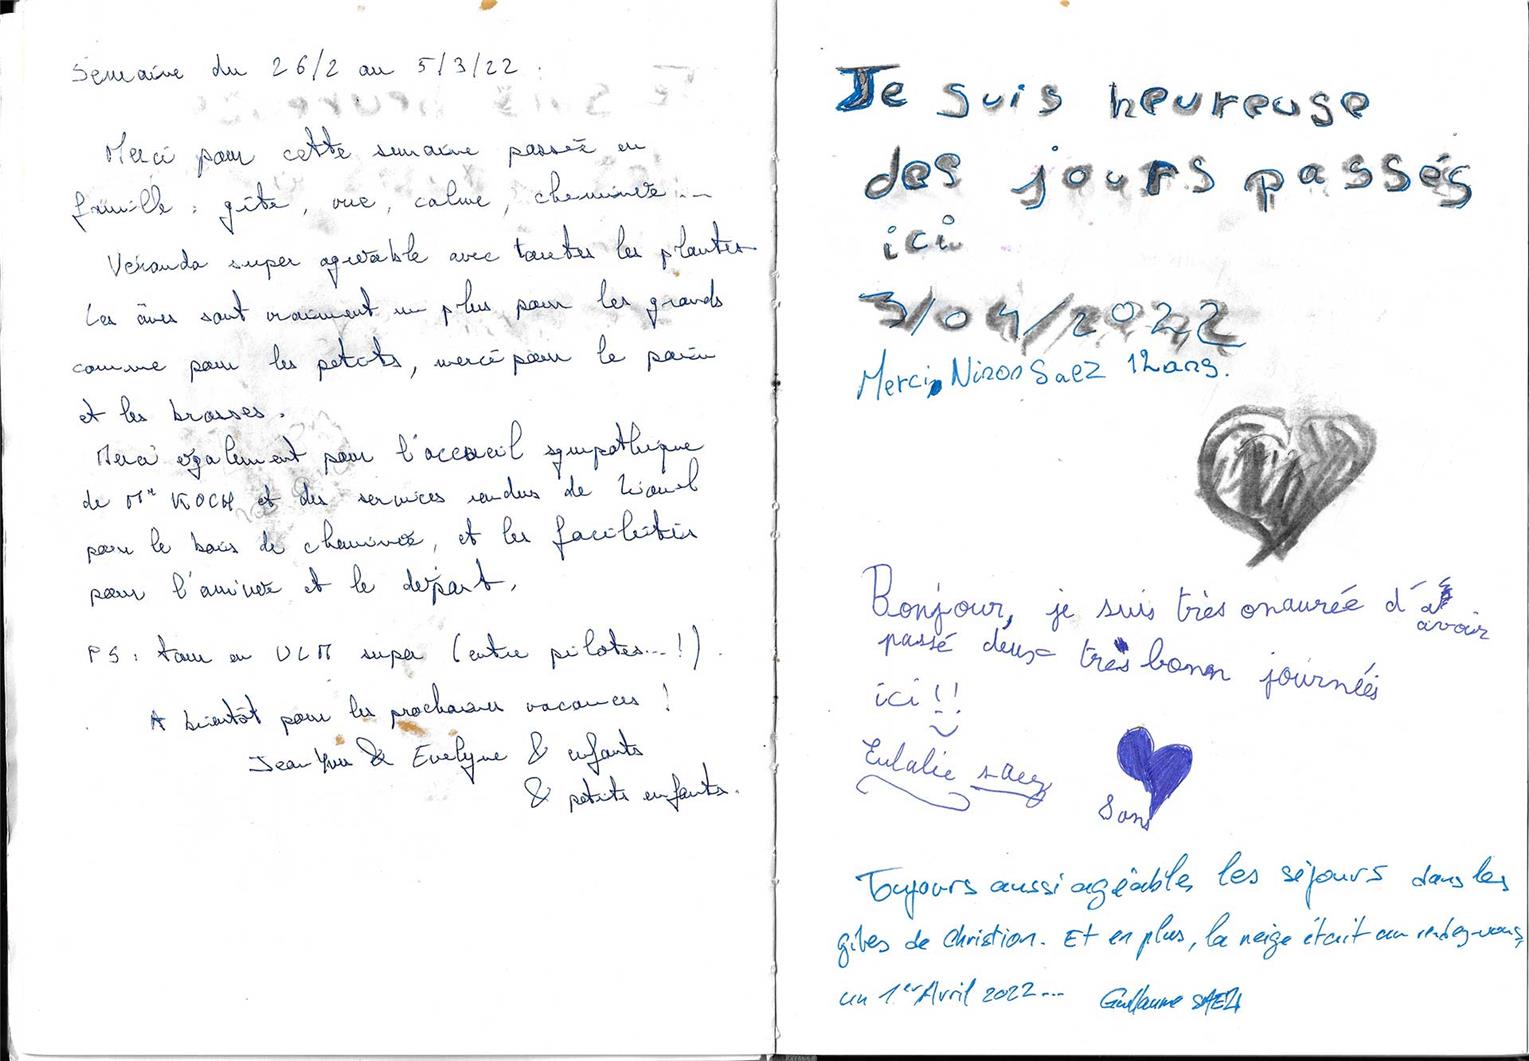 Semaine du 26/2 au 5/3/22.
Merci pour cette semaine passée en
famille : gîte, vue, calme, cheminée...
Véranda super agréable avec toutes les plantes
Les ânes sont vraiment un plus pour les grands
comme pour les petits, merci pour le pain
et les brosses.
Merci également pour l'accueil sympathique
de Mr KOCH et des services rendus de Lionel
pour le bois de cheminée, et les facilités
pour l'arrivée et le départ.
PS : tour en ULM super (entre pilotes...!).
A bientôt pour les prochaines vacances !
Jean Yves & Evelyne & enfants
& petits enfants.
Je suis heureuse
des jours passés
ici
3/04/2022
Merci, Ninon Saez 12 ans.
Bonjour, je suis très onaurée d'
avoir
passé deux très bonn journéés
ici !!
Eulalie saez
8 ans
Toujours aussi agéable les séjours dans les
gîtes de Christian. Et en plus, la neige était au rendez-vous,
un 1er Avril 2022... Guillaume SAEZ